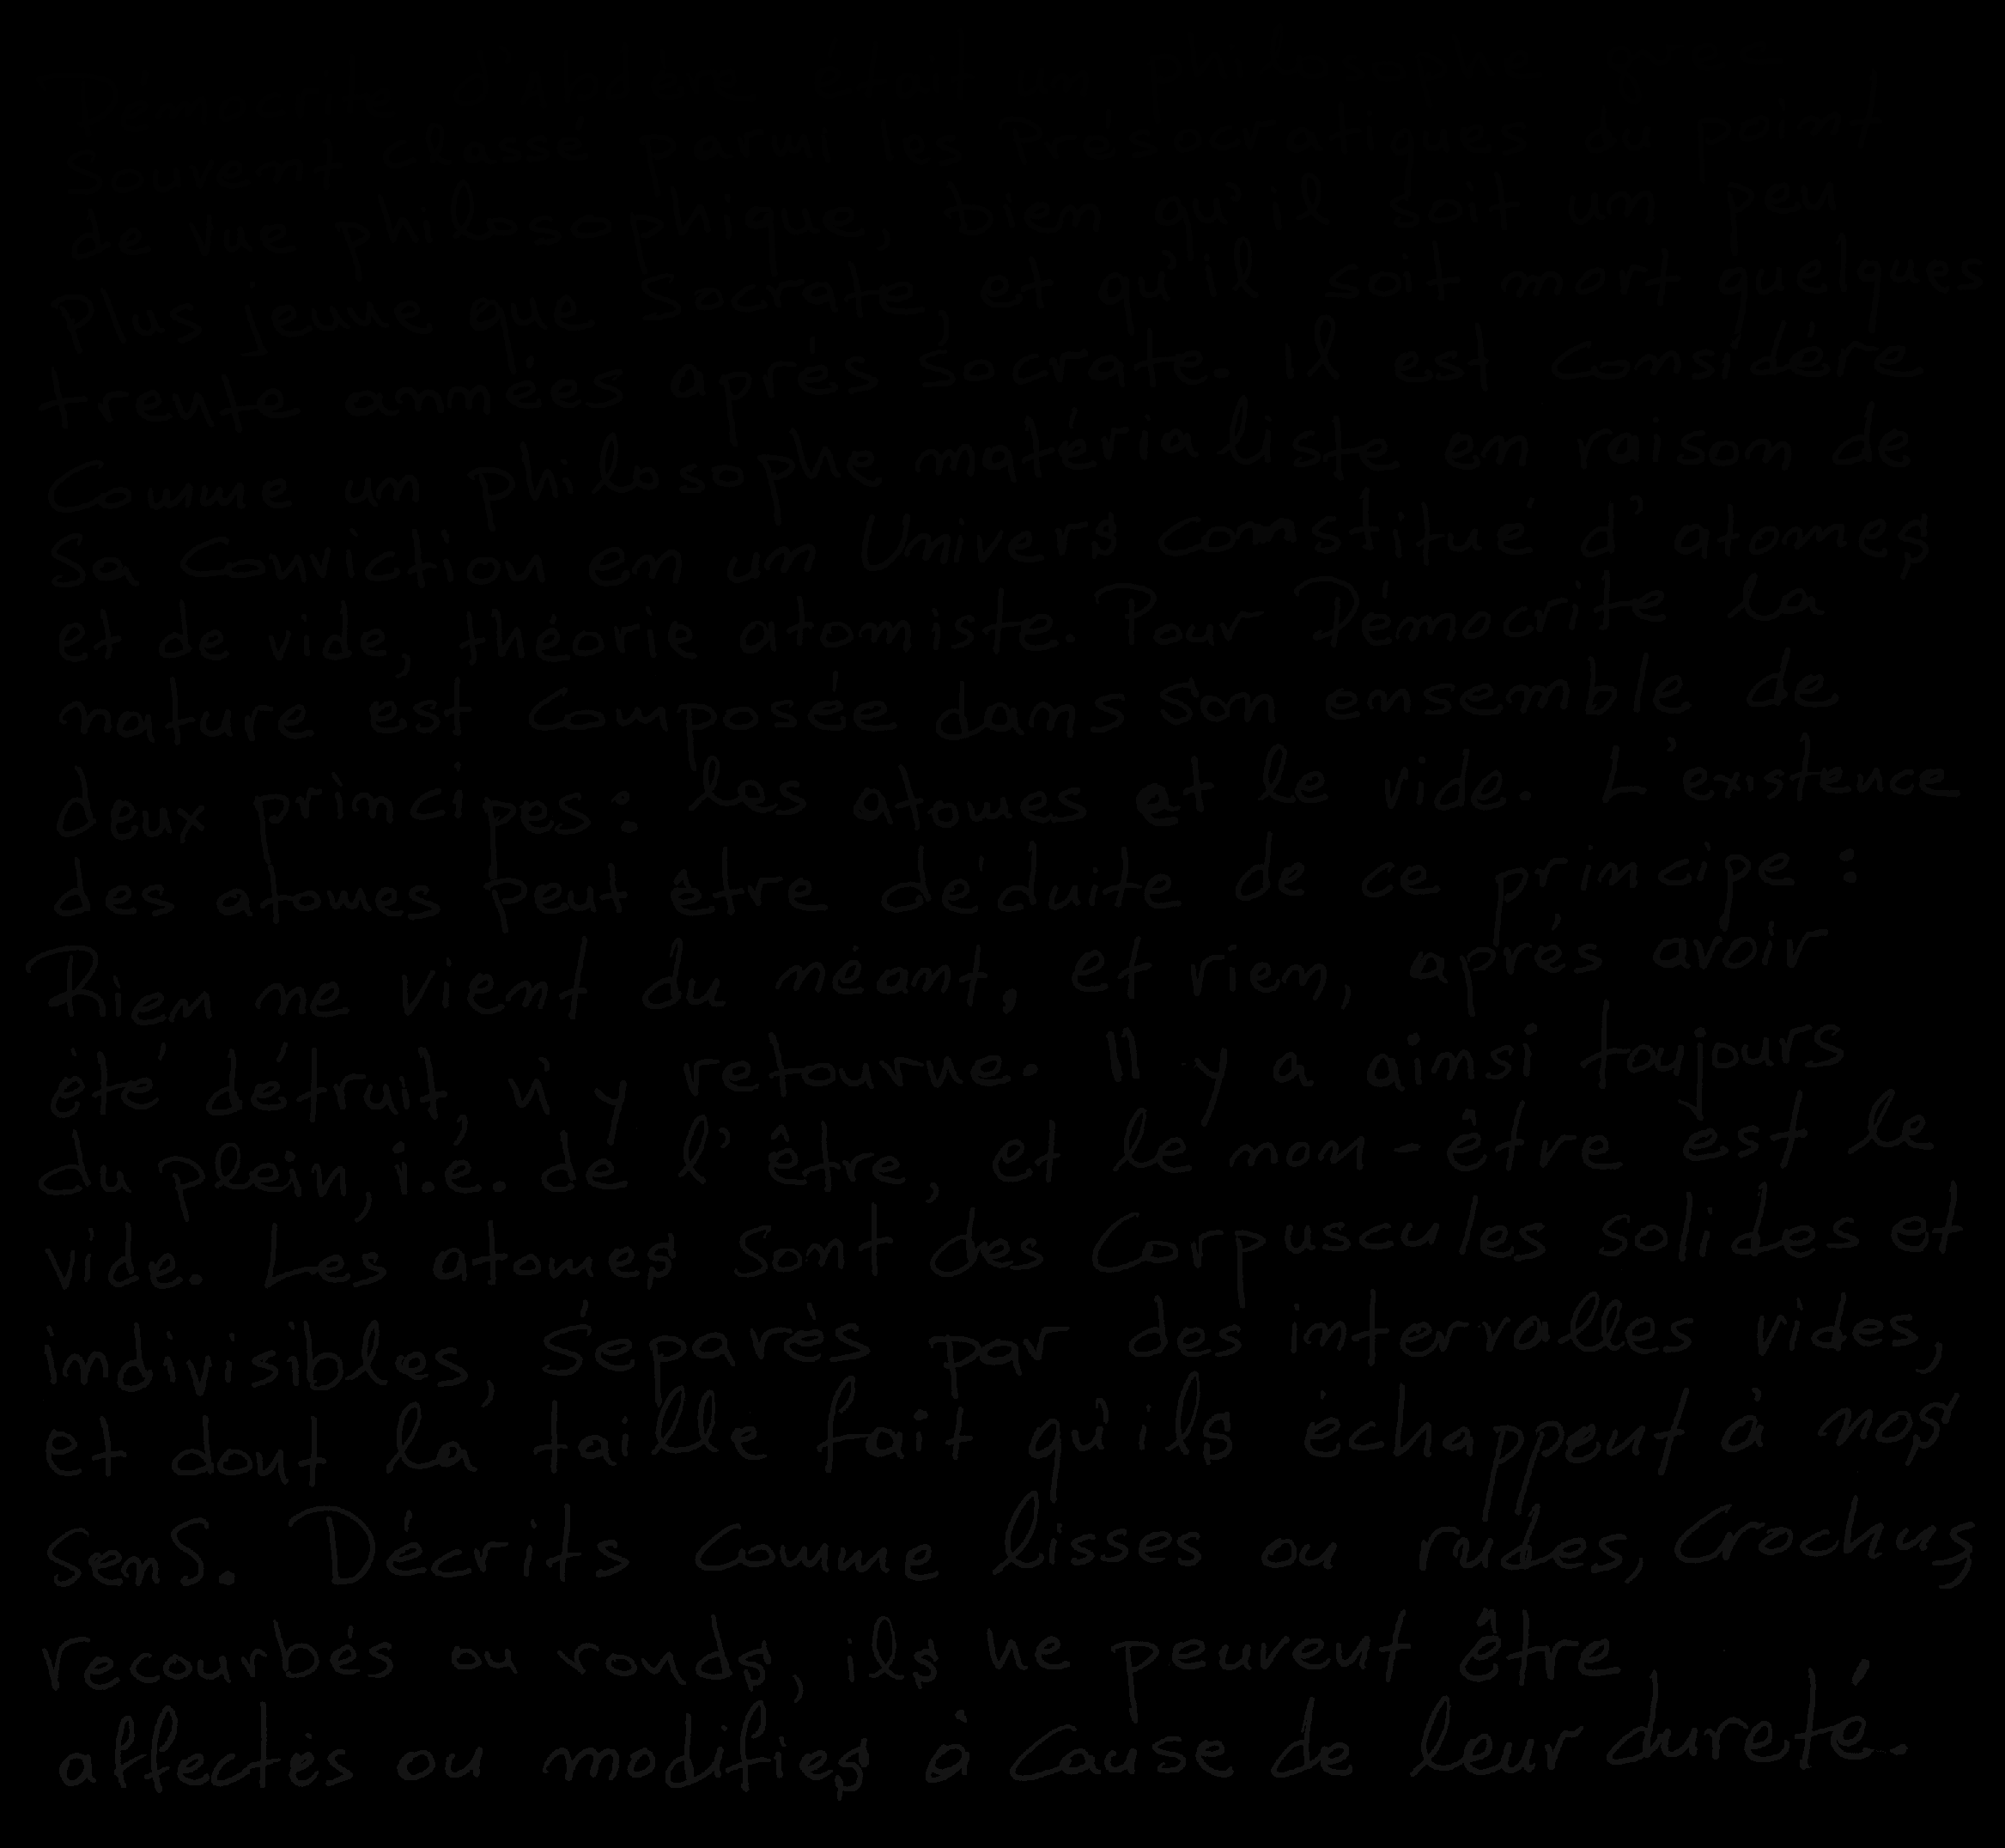 Démocrite d'Abdère était un philosophe grec
Souvent classé parmi les Présocratiques du point
de vue philosophique, bien qu'il soit un peu
Plus jeune que Socrate, et qu'il soit mort quelques
trente années après Socrate. Il est Considéré
Comme un philosophe matérialiste en raison de
Sa Conviction en un Univers Constitué d'atomes
et de vide, théorie atomiste. Pour Démocrite la
nature est Composée dans son ensemble de
deux principes: les atomes et le vide. L'existence
des atomes peut être déduite de ce principe :
Rien ne vient du néant, et rien, après avoir
été détruit, n'y retourne. Il y a ainsi toujours
du plein, i.e. de l'être, et le non-être est le
vide. Les atomes sont des Corpuscules solides et
indivisibles, Séparés par des intervalles vides,
et dont la taille fait qu'ils échappent à nos
sens. Décrits Comme lisses ou rudes, Crochus,
recourbés ou ronds, ils ne peuvent être
affectés ou modifiés à Cause de leur dureté.